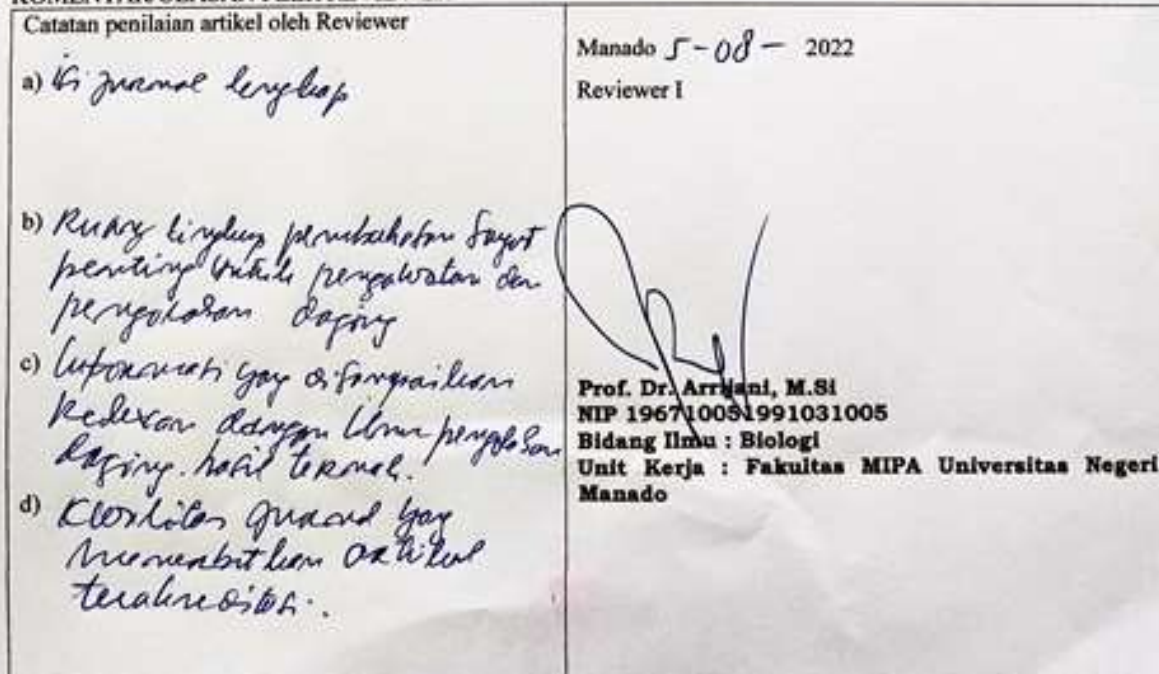 Catatan penilaian artikel oleh Reviewer
a) isi jurnal lengkap
b) Ruang lingkup pembahasan sangat
penting untuk pengawetan dan
pengolahan daging
c) Informasi yang disampaikan
relevan dengan ilmu pengolahan
daging hasil ternak.
d) Kualitas jurnal yang
menerbitkan artikel
terakreditasi.
Manado 5-08- 2022
Reviewer I
Prof. Dr. Arrijani, M.Si
NIP 196710051991031005
Bidang Ilmu : Biologi
Unit Kerja : Fakultas MIPA Universitas Negeri
Manado